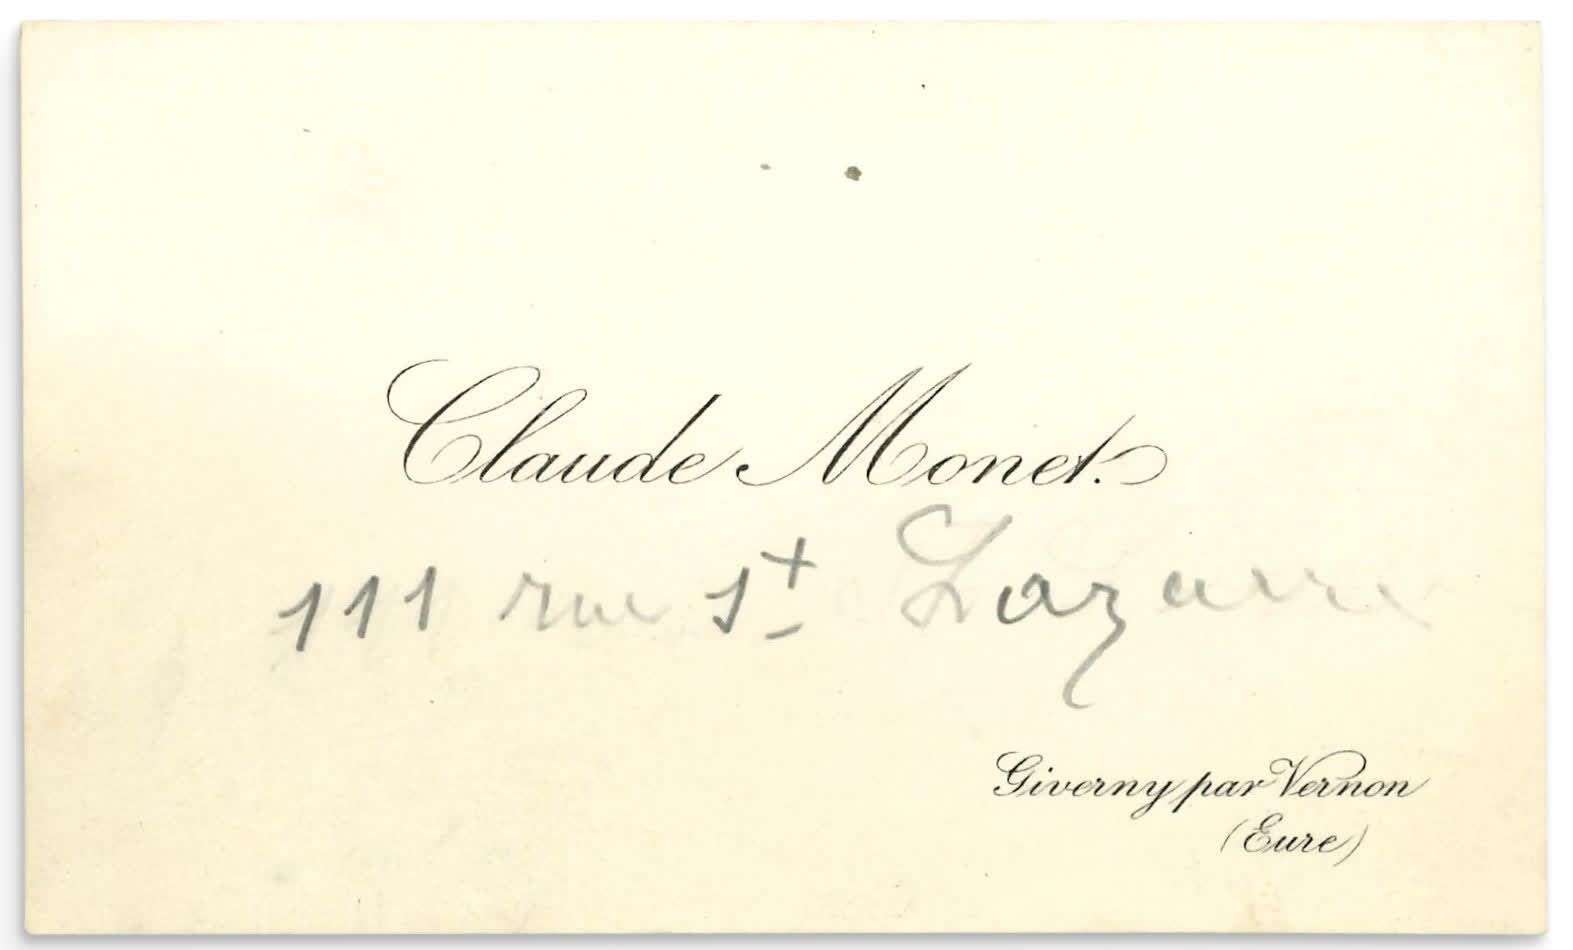 Claude Monet.
111 rue St Lazarre
Giverny par Vernon
(Eure)